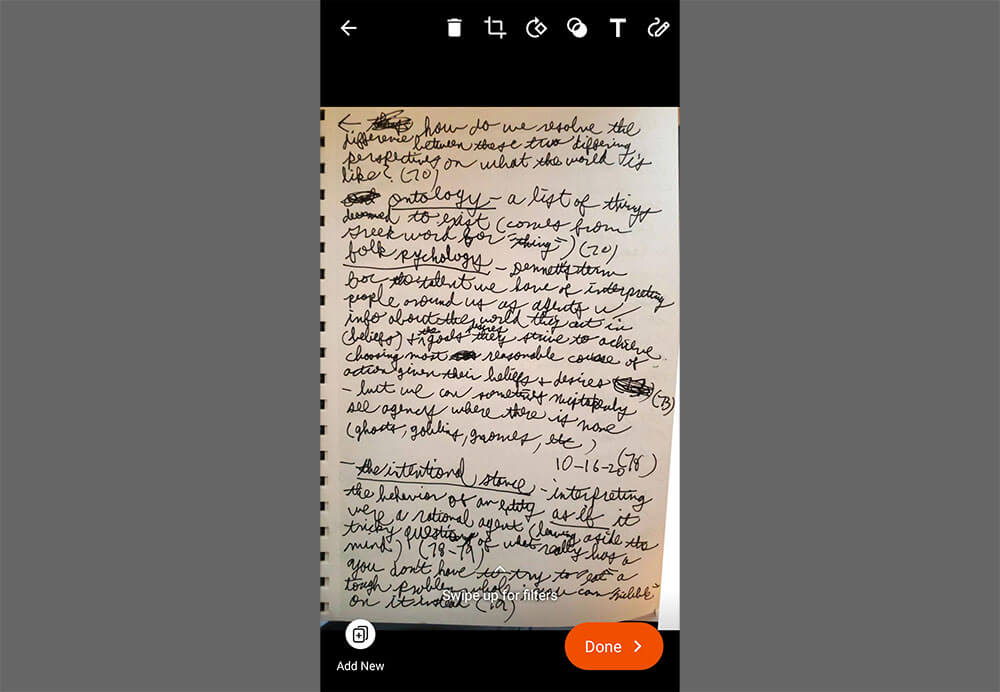 ← how do we resolve the
difference between these two differing
perspectives on what the world is
like? (70)
ontology - a list of things
deemed to exist (comes from
Greek word for "thing") (70)
folk psychology - Dennett's term
for the talent we have of interpreting
people around us as agents w/
info about the world they act in
(beliefs) & the goals they strive to achieve
desires
choosing most reasonable course of
action given their beliefs & desires (73)
- but we can sometimes mistakenly
see agency where there is none
(ghosts, goblins, gnomes, etc)
(78)
10-16-20
- the intentional stance - interpreting
the behavior of an entity as if it
were a rational agent (leaving aside the
tricky questions of what really has a
mind) (78-79)
you don't have to try to "eat" a
tough problem whole - you can "nibble"
on it instead (79)
Swipe up for filters
Add New
Done